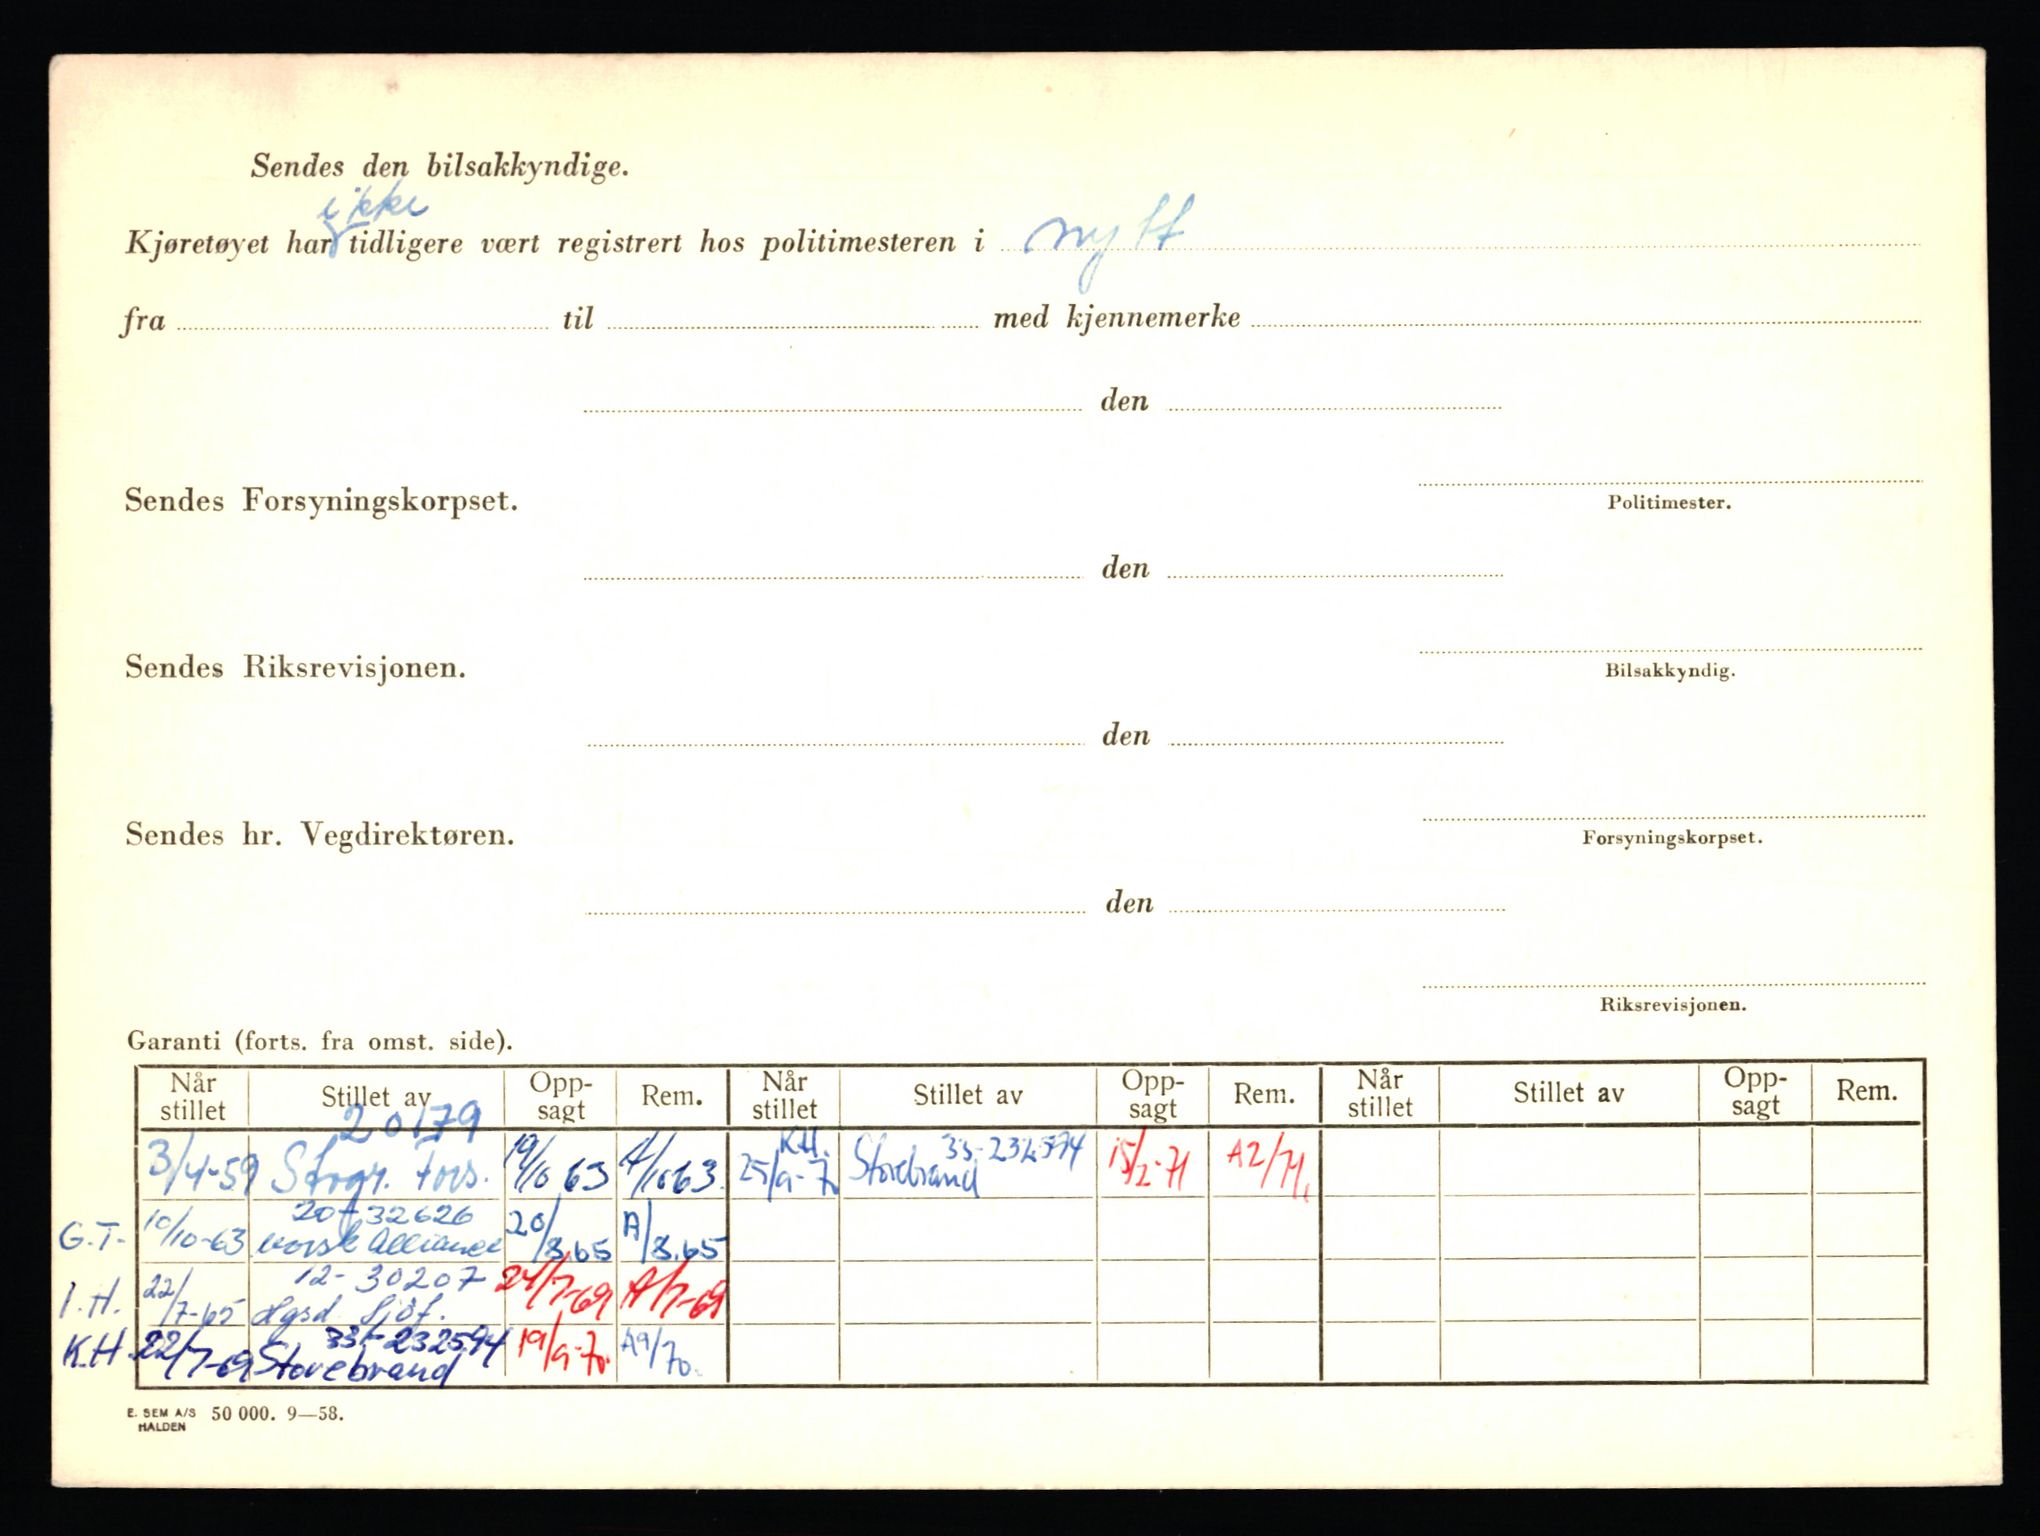 Sendes den bilsakkyndige.
ikke
Kjøretøyet har tidligere vært registrert hos politimesteren i nytt
fra til med kjennemerke
den
Sendes Forsyningskorpset.
Politimester.
den
Sendes Riksrevisjonen.
Bilsakkyndig.
den
Sendes hr. Vegdirektøren.
Forsyningskorpset.
den
Riksrevisjonen.
Garanti (forts. fra omst. side).
Når stillet Stillet av Opp-sagt Rem. Når stillet Stillet av Opp-sagt Rem. Når stillet Stillet av Opp-sagt Rem.
20179 K.H. 33-232574
3/4-59 Stogr. Fors. 19/10 63 A/10 63. 25/9-70 Storebrand 15/2-71 A2/71
20-32626
G.T. 10/10-63 Norsk Alliance 20/8.65 A/8.65
12-30207
I.H. 22/7-65 Hgsd. Sjøf. 24/7-69 A/7-69
33-232594
K.H. 22/7-69 Storebrand 19/9-70. A9/70.
E. SEM A/S 50 000. 9—58.
HALDEN